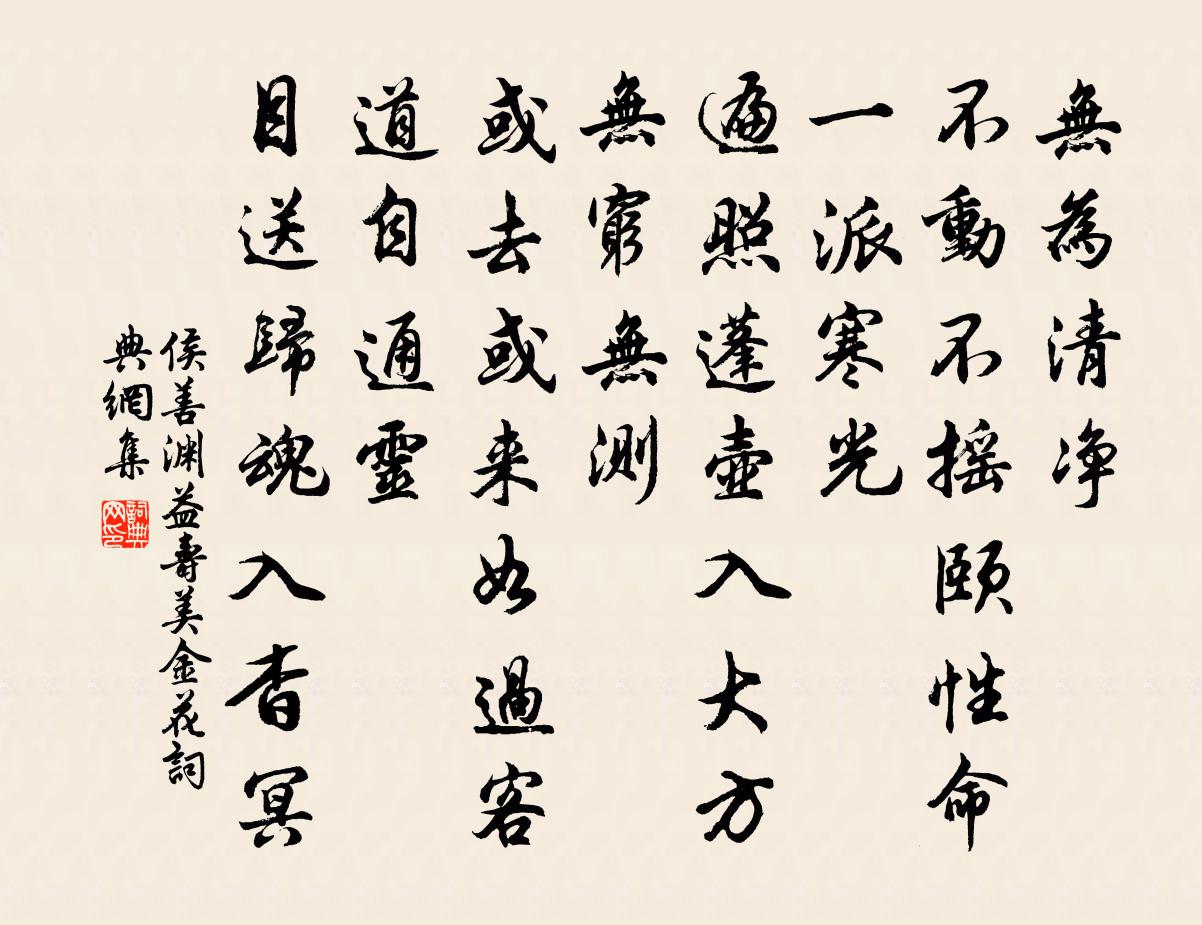 無為清净
不動不摇頤性命
一派寒光
遍照蓬壺入大方
無窮無測
或去或来如過客
道自通靈
目送歸魂入杳冥
侯善渊益壽美金花詞
典網集
詞典网印